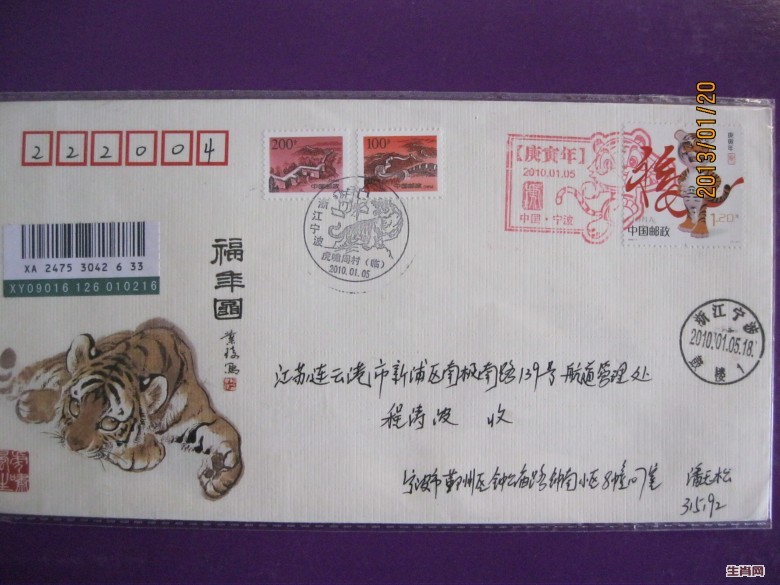 2013/01/20
222004
200分
中国邮政
100分
中国邮政
【庚寅年】
2010.01.05
中国·宁波
庚寅年
1.20元
中国邮政
浙江宁波
虎啸周村(临)
2010.01.05
XA 2475 3042 6 33
XY09016 126 010216
福年图
浙江宁波
2010.01.05.18
鼓楼 1
江苏连云港市新浦区南极南路139号航道管理处
程涛波 收
宁波市鄞州区钟公庙路钟南小区
315192
生肖网